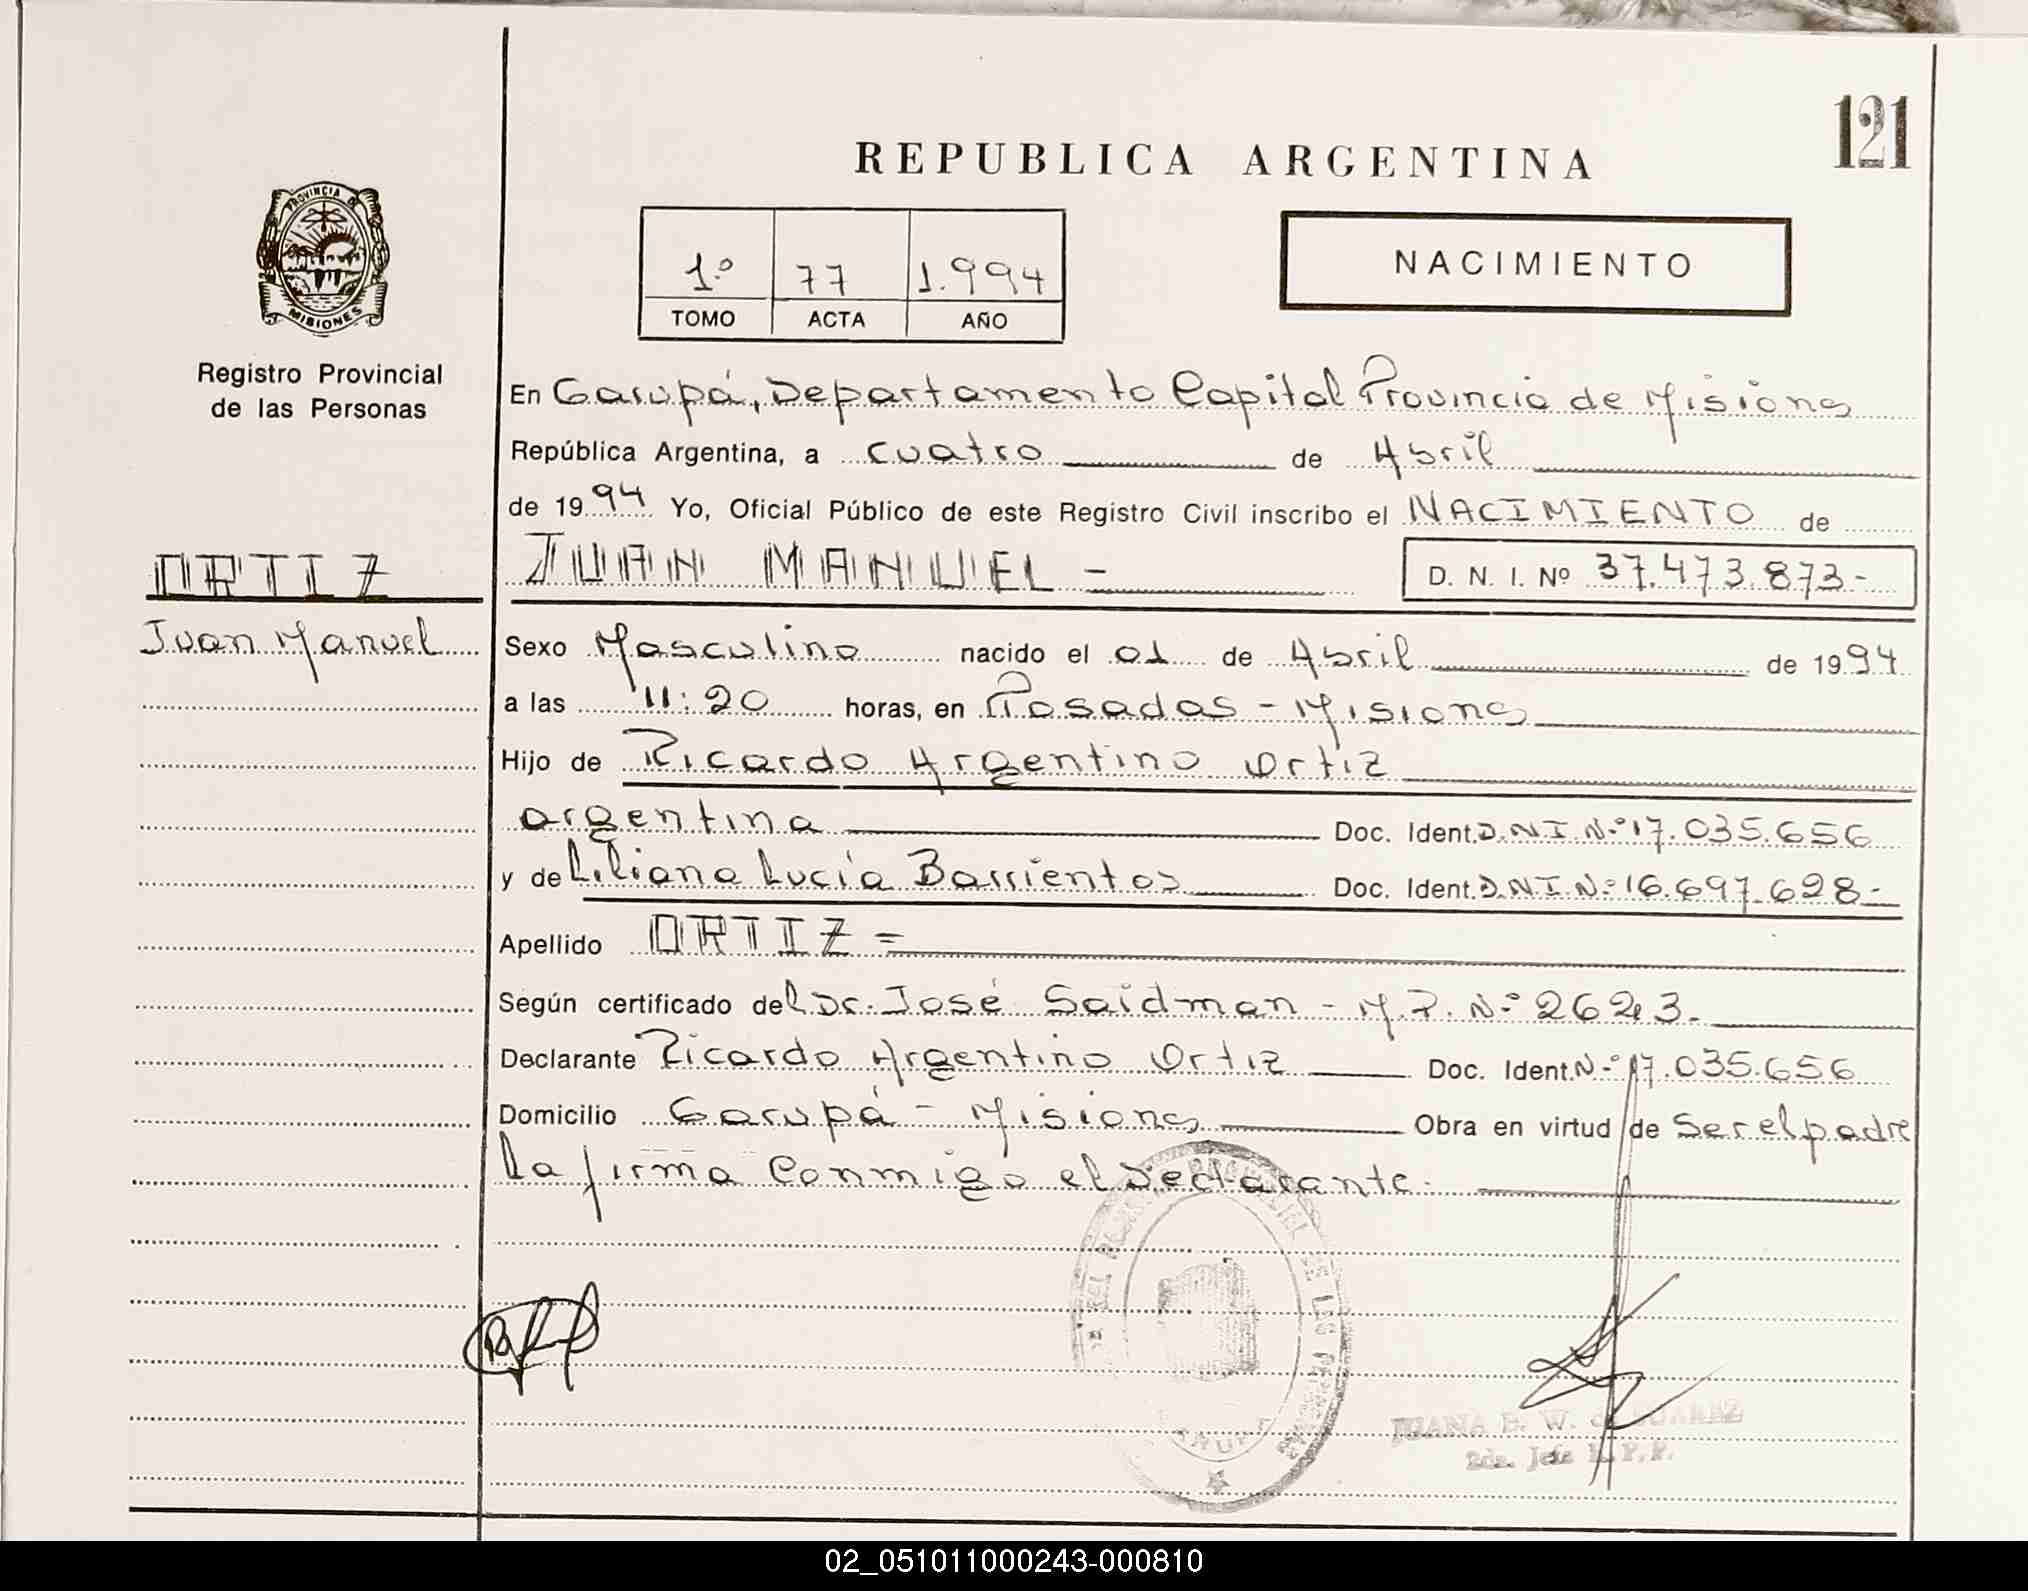 121
REPUBLICA ARGENTINA
PROVINCIA DE
MISIONES
Registro Provincial
de las Personas
1º 77 1.994
TOMO ACTA AÑO
NACIMIENTO
En Garupá, Departamento Capital Provincia de Misiones
República Argentina, a cuatro de Abril
de 1994 Yo, Oficial Público de este Registro Civil inscribo el NACIMIENTO de
JUAN MANUEL -
D. N. I. Nº 37.473.873-
ORTIZ
Juan Manuel
Sexo Masculino nacido el 01 de Abril de 1994
a las 11:20 horas, en Posadas - Misiones
Hijo de Ricardo Argentino Ortiz
argentina Doc. Ident. D.N.I.Nº 17.035.656
y de Liliana Lucía Barrientos Doc. Ident. D.N.I.Nº 16.697.628-
Apellido ORTIZ =
Según certificado del Dr. José Saidman - M.P. Nº 2643.
Declarante Ricardo Argentino Ortiz Doc. Ident. Nº 17.035.656
Domicilio Garupá - Misiones Obra en virtud de Ser el padre
La firma Conmigo el Declarante.
JUANA E. W. de SUAREZ
2da. Jefe R.P.P.
02_051011000243-000810